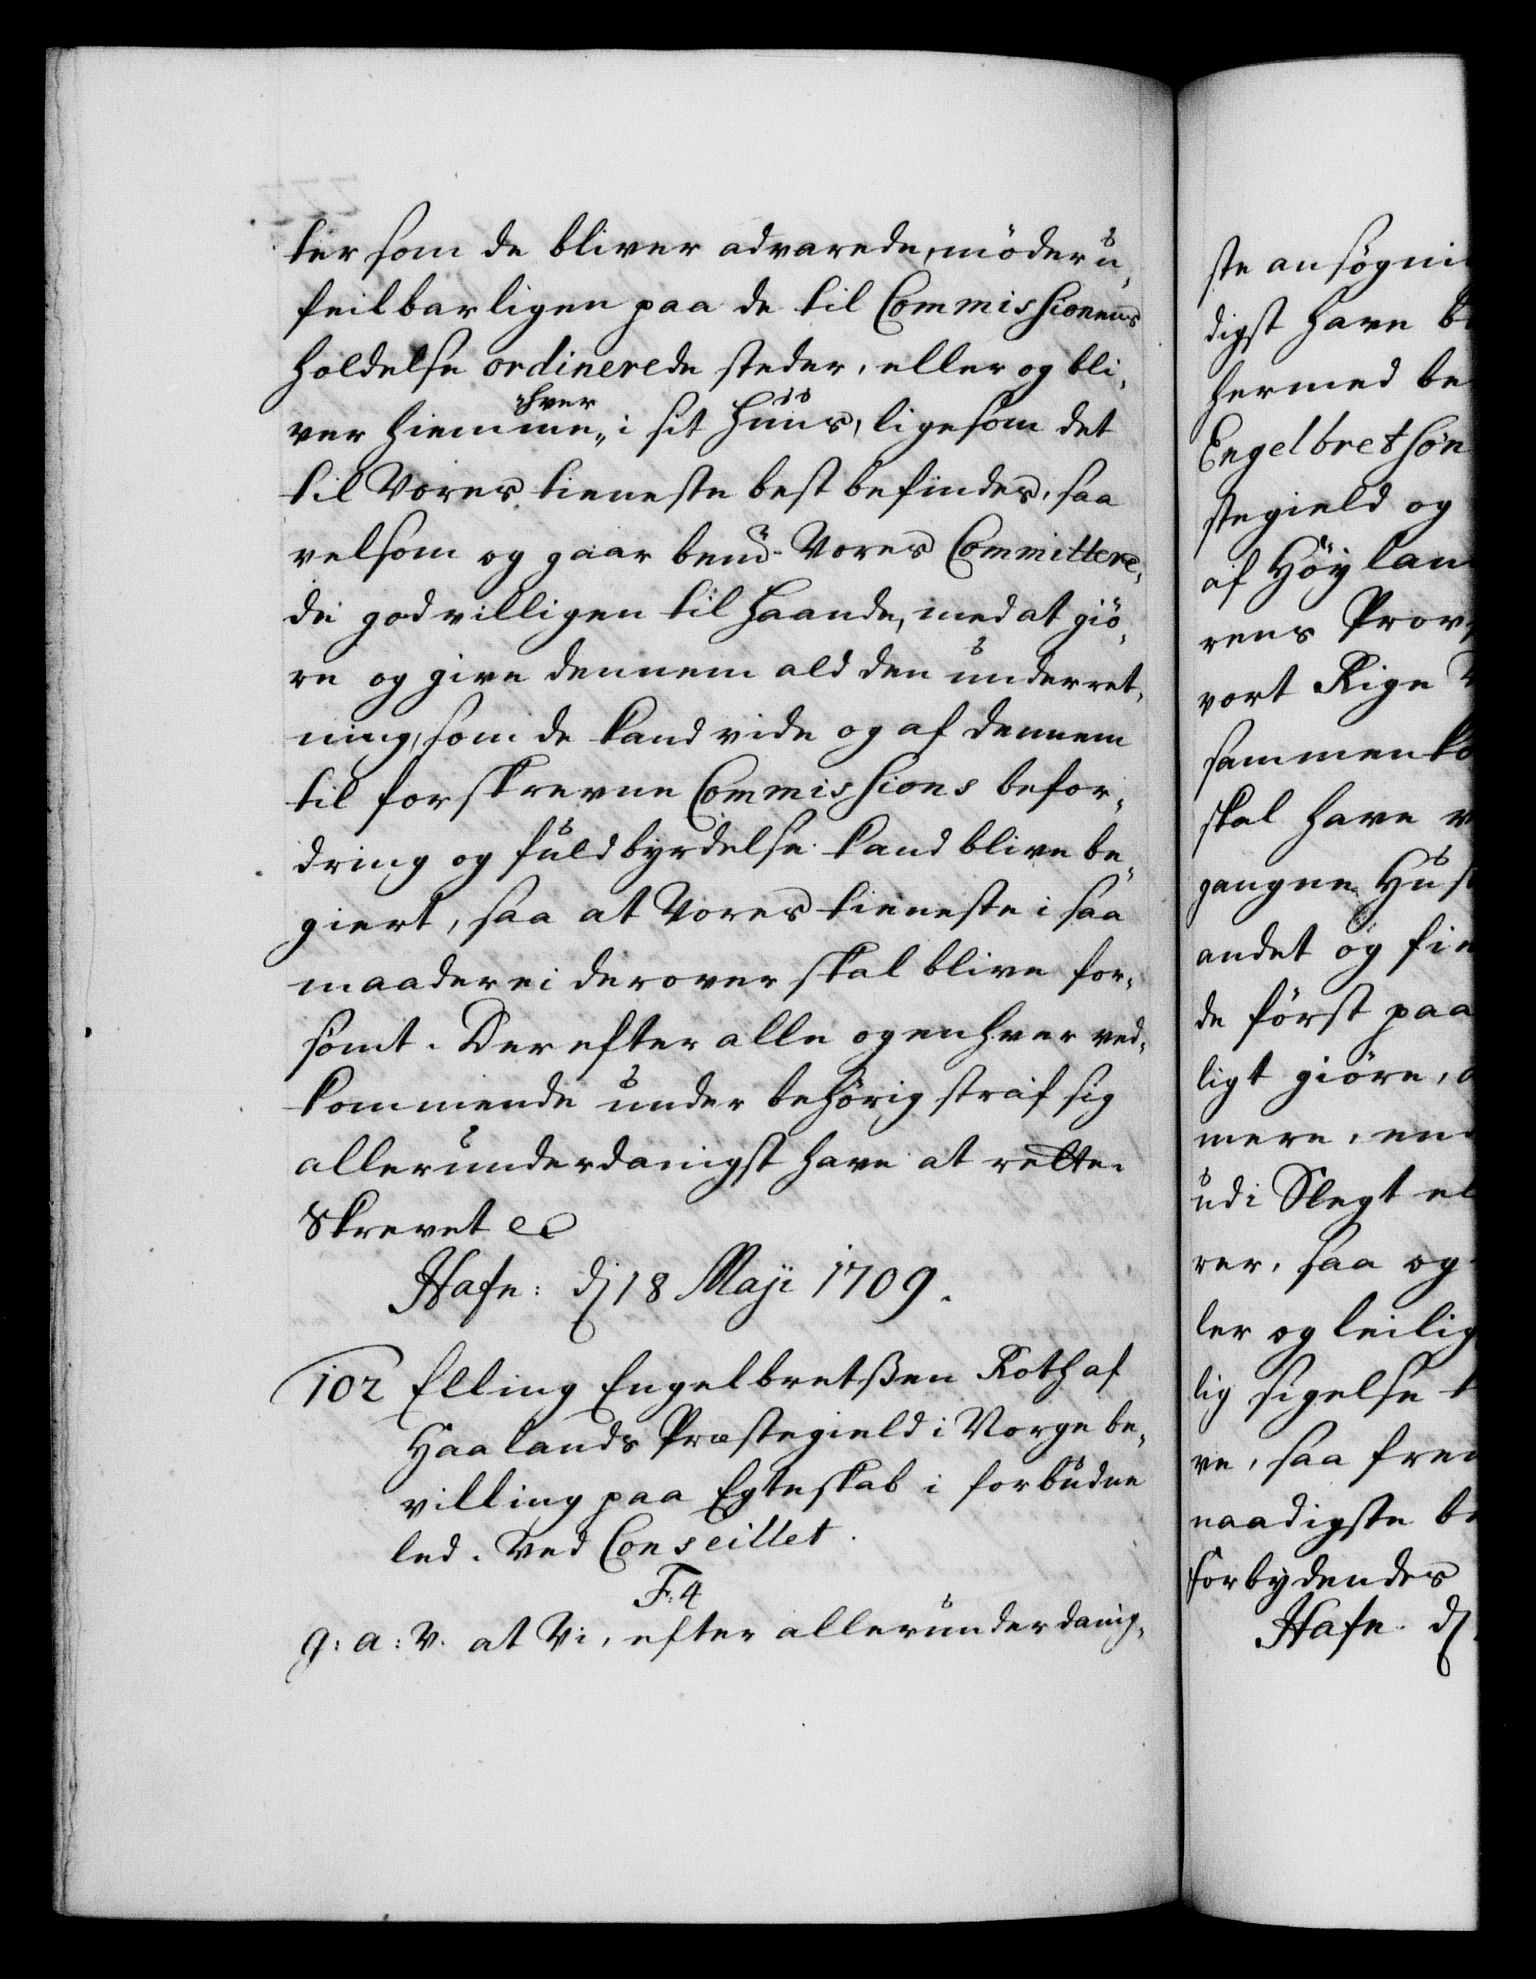 ter som de bliver advarede, møder u¬
feilbarligen paa de til Commissionens
holdelse ordinerede steder, eller og bli¬
ver hiemme hver i sit Huus, ligesom det
til Vores tieneste best befindes, saa
velsom og gaar bem:te Vores Committere¬
de godvilligen til Haande, med at giö¬
re og give dennem ald den underret¬
ning, som de kand vide og af dennem
til forskrevne Commissions befor¬
dring og fuldbyrdelse kand blive be¬
giert, saa at Vores tieneste i saa
maader ei derover skal blive for¬
sømt. Der efter alle og enhver ved¬
kommende under behörig straf sig
allerunderdanigst have at rette.
Skrevet &c
Hafn: dj 18 Maji 1709.
102 Elling Engelbretßen Roth af
Haalands Præstegield i Norge be¬
villing paa Egteskab i forbudne
led. Ved Conseillet.
F: 4
G: A: V. at Vi, efter allerunderdanig¬
ste ansögni
digst have be
hermed be
Engelbretsøn
stegield og
af Höylan
rens Prov
vort Rige N
sammenko
skal have v
gangne Hust
andet og fi
de först paa
ligt giöre, a
mere, en
udi Slegt el
rer, saa og
ler og leilig
lig sigelse t
re, saa frem
naadigste be
Forbydendes
Hafn. dj